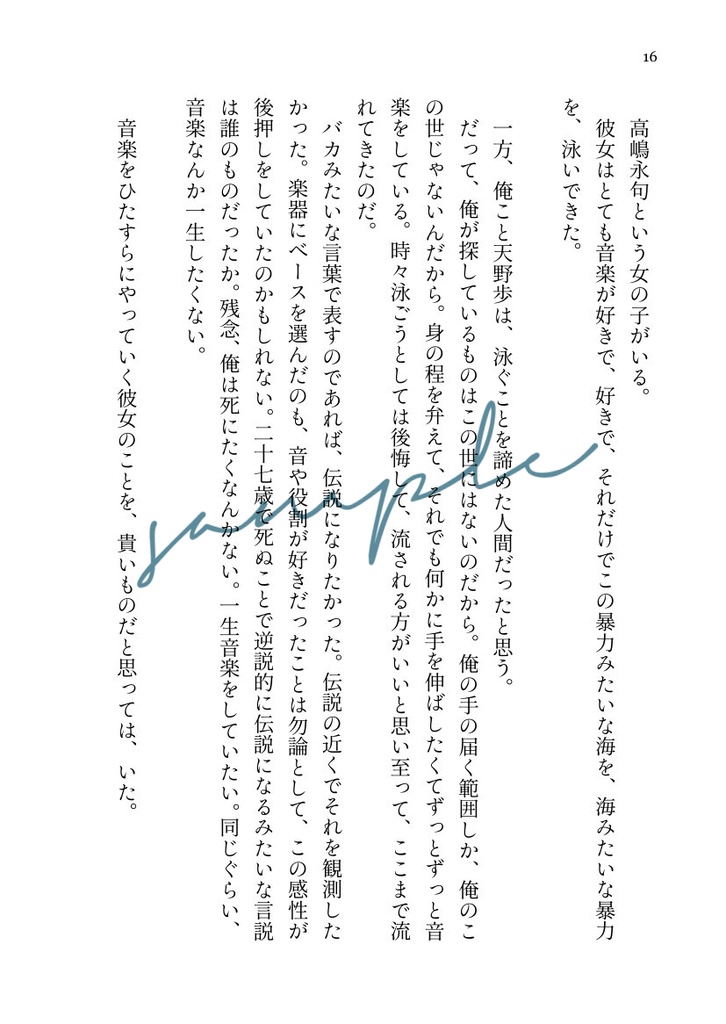 16
高嶋永句という女の子がいる。
彼女はとても音楽が好きで、好きで、それだけでこの暴力みたいな海を、海みたいな暴力
を、泳いできた。
一方、俺こと天野歩は、泳ぐことを諦めた人間だったと思う。
だって、俺が探しているものはこの世にはないのだから。俺の手の届く範囲しか、俺のこ
の世じゃないんだから。身の程を弁えて、それでも何かに手を伸ばしたくてずっとずっと音
楽をしている。時々泳ごうとしては後悔して、流される方がいいと思い至って、ここまで流
れてきたのだ。
バカみたいな言葉で表すのであれば、伝説になりたかった。伝説の近くでそれを観測した
かった。楽器にベースを選んだのも、音や役割が好きだったことは勿論として、この感性が
後押しをしていたのかもしれない。二十七歳で死ぬことで逆説的に伝説になるみたいな言説
は誰のものだったか。残念、俺は死にたくなんかない。一生音楽をしていたい。同じぐらい、
音楽なんか一生したくない。
音楽をひたすらにやっていく彼女のことを、貴いものだと思っては、いた。
sample